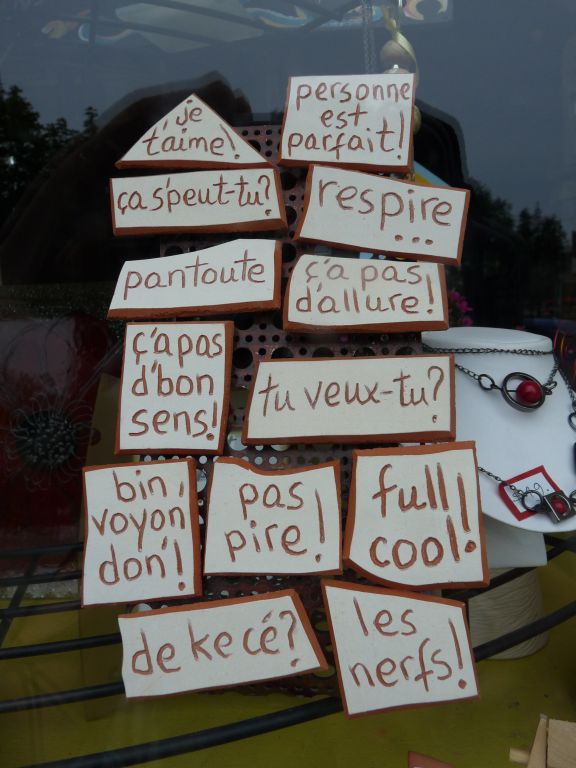 je
t'aime!
personne
est
parfait!
ça s'peut-tu?
respire
...
pantoute
ç'a pas
d'allure!
ç'a pas
d'bon
sens!
tu veux-tu?
bin,
voyon
don'!
pas
pire!
full
cool!
de ke cé?
les
nerfs!